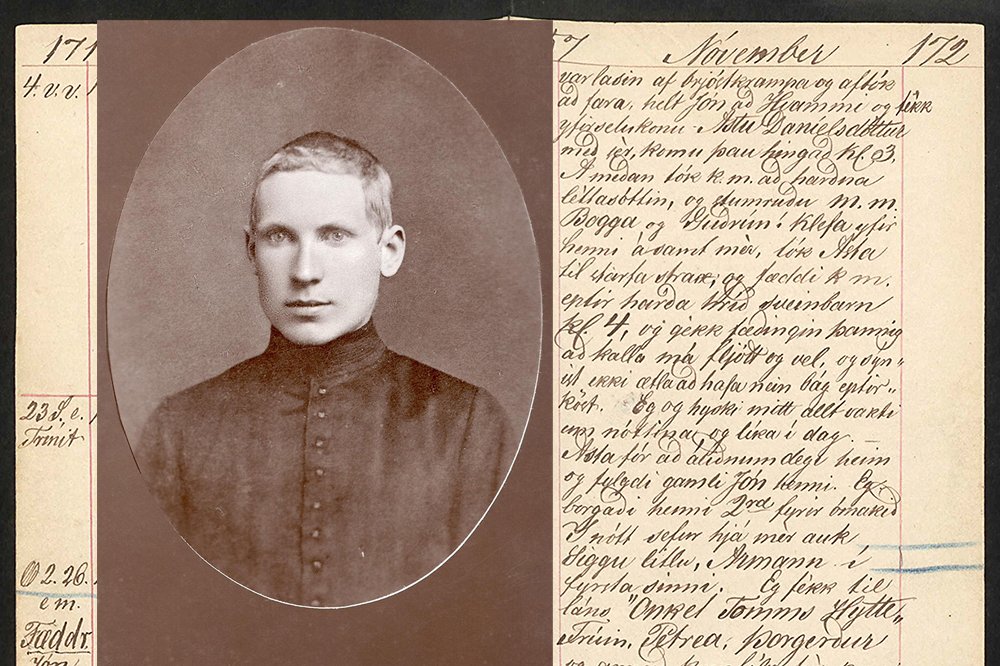 171
4. v. v.
23 S. e.
Trinit
2. 26.
e m.
Fæddr
Jón
57 November 172
var lasin af brjóstkrampa og aftók
að fara, helt Jón að Hvammi og fékk
yfirsetukonu Ástu Daníelsdóttur
með sér, komu þau hingað kl. 3.
Á meðan tók k. m. að harðna
léttasóttin, og stumruðu m. m.
Bogga og Guðrún í Klefa yfir
henni ásamt mér, tók Ásta
til starfa strax, og fæddi k m.
eptir harða hríð sveinbarn
kl. 4, og gékk fæðingin þannig
að kalla má fljótt og vel, og sýn„
ist ekki ætla að hafa nein bág eptir„
köst. Eg og hyski mitt allt vakti
um nóttina og líka í dag. —
Ásta fór að áliðnum degi heim
og fylgdi gamli Jón henni. Eg
borgaði henni 2rd fyrir ómakið
Í nótt sefur hjá mér auk
Siggu litlu, Ármann í
fyrsta sinni. Eg fékk til
láns "Onkel Tomms Hytte„
Frúin, Petrea, Þorgerður
og